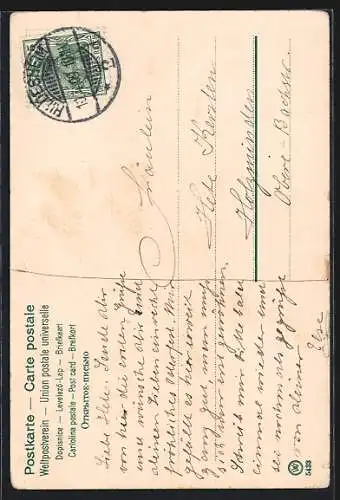 Postkarte — Carte postale
Weltpostverein — Union postale universelle
Dopisnice — Levelező-Lap — Briefkaart
Cartolina postale — Post card — Brefkort
Открытое письмо
HILDESHEIM
Fräulein
Hete
Holzminden
Obere-Bachstr.
Liebe Hete. Sende dir
von hier die ersten Grüße
und wünsche dir und
deinen lieben ein recht
fröhliches Osterfest. Mir
gefällt es hier soweit
ganz gut man muß
sich hier erst gewöhnen.
Schreib mir bitte bald
einmal wieder und
sei nochmals gegrüßt
von deiner
Else
5433